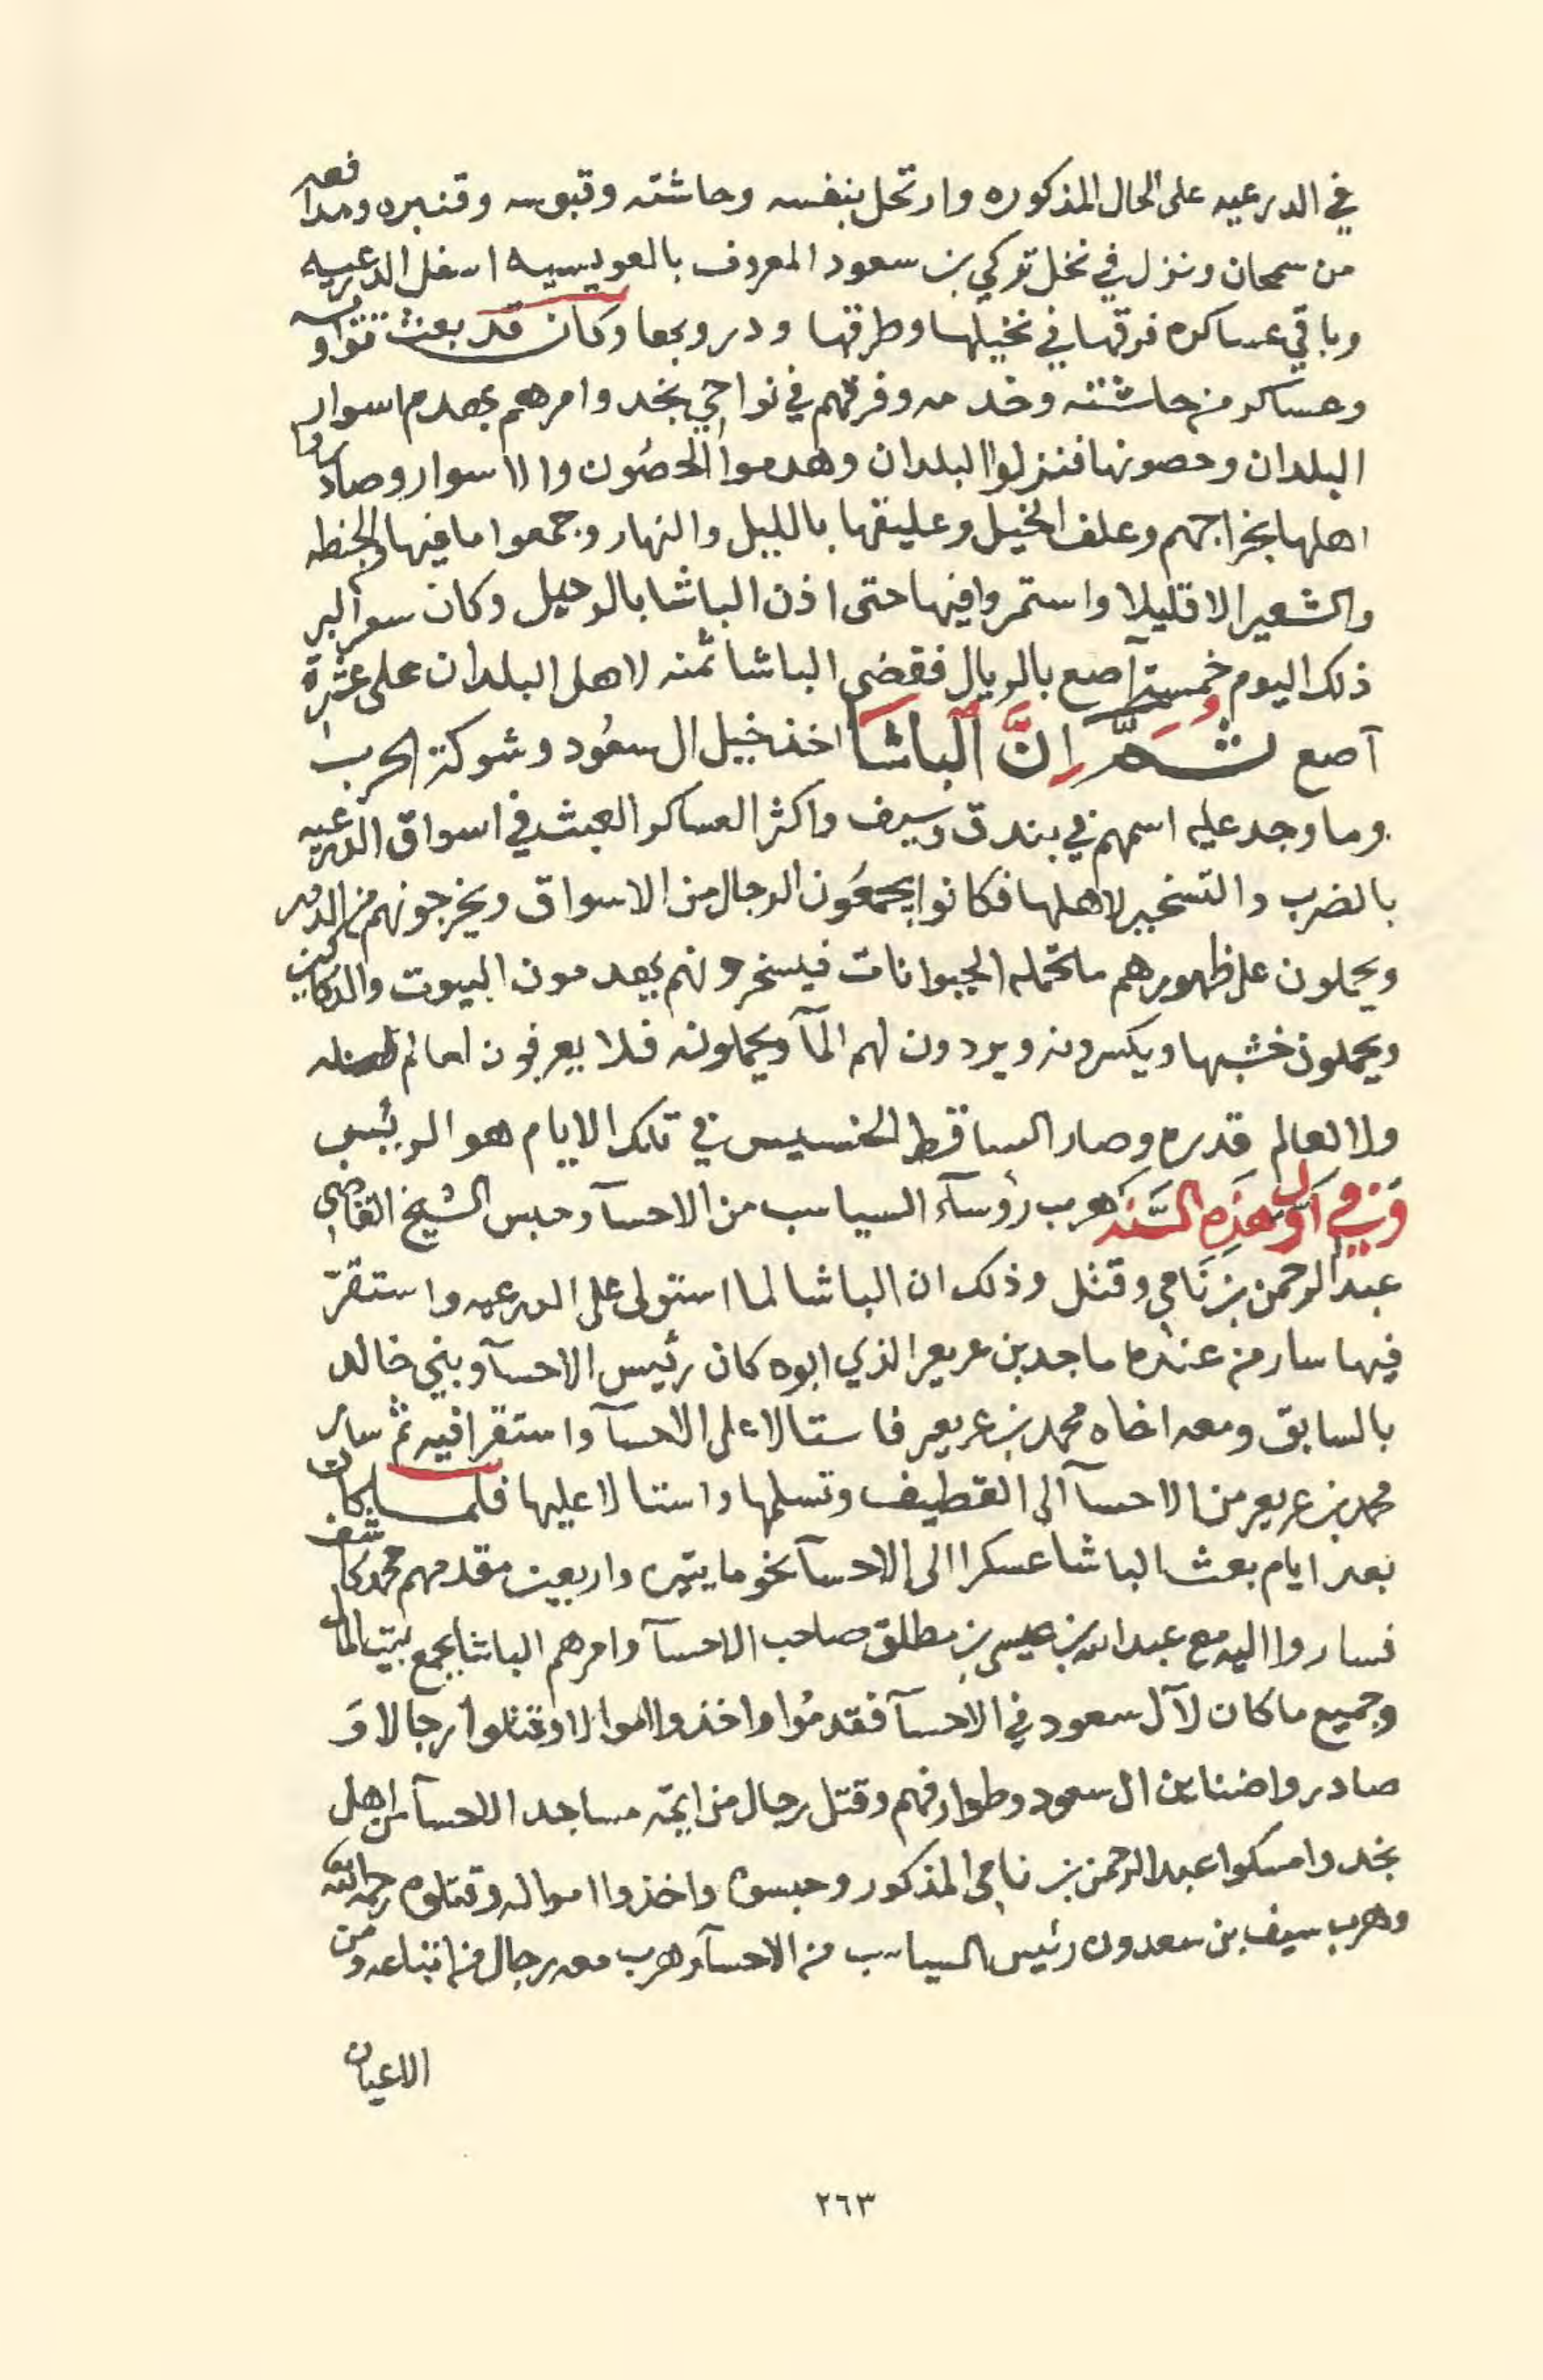 في الدرعيه على الحال المذكوره وارتحل بنفسه وحاشته وقبوسه وقنبره ومدافعه
من سمحان ونزل في نخل تركي بن سعود المعروف بالعويسيه اسفل الدرعيه
وباقي عساكره فرقها في نخيلها وطرقها ودروبها وكان قد بعث
وعساكر من حاشته وخدمه وفرقهم في نواحي نجد وامرهم بهدم اسوار
البلدان وحصونها فنزلوا البلدان وهدموا الحصون والاسوار وصادروا
اهلها بخراجهم وعلف الخيل وعليقها بالليل والنهار وجمعوا ما فيها من الحنطه
والشعير الا قليلا واستمروا فيها حتى اذن الباشا بالرحيل وكان سعر البر
ذلك اليوم خمسة آصع بالريال فقضى الباشا ثمنه لاهل البلدان على عشرة
آصع ثُمَّ اِنَّ اَلباشَا اخذ خيل ال سعُود وشوكة الحرب
وما وجد عليه اسمهم في بندق وسيف واكثر العساكر العبث في اسواق الدرعيه
بالضرب والتسخير لاهلها فكانوا يجمعُون الرجال من الاسواق ويخرجونهم من الدُور
ويحملون على ظهورهم ما تحمله الحيوانات فيسخرونهم يهدمون البيوت والدكاكين
ويحملون خشبها ويكسرونه ويردون لهم المآ ويحملونه فلا يعرفون لعالم فضله
ولا لعالم قدره وصار الساقط الخسيس في تلك الايام هو الرئيس
وَفي اَوَّل هَذِه السَّنَه هرب رؤسآء السياسب من الاحسآ وحبس الشيخ القاضي
عبد الرحمن بن نَامي وقتل وذلك ان الباشا لما استولى على الدرعيه واستقرّ
فيها سار من عنده ماجد بن عريعر الذي ابوه كان رئيس الاحسآ وبني خالد
بالسابق ومعه اخاه محمد بن عريعر فاستالا على الاحسآ واستقرا فيه ثم سار
محمد بن عريعر من الاحسآ الى القطيف وتسلمها واستالا عليها فلما كان
بعد ايام بعث الباشا عسكرا الى الاحسآ نحو مايتين واربعين مقدمهم محمد كاشف
فساروا اليه مع عبد الله بن عيسى بن مطلق صاحب الاحسآ وامرهم الباشا بجمع بيت المال
وجميع ما كان لآل سعود في الاحسآ فقدمُوا واخذوا اموالا وقتلوا رجالا وَ
صادروا ضناين ال سعود وطوارفهم وقتل رجال من ايمة مساجد الاحسآ من اهل
نجد وامسكوا عبد الرحمن بن نامي المذكور وحبسوه واخذوا امواله وقتلوه رحمه الله
وهرب سيف بن سعدون رئيس السياسب من الاحسآ وهرب معه رجال من اتباعه ومن
الاعيان
٢٦٣